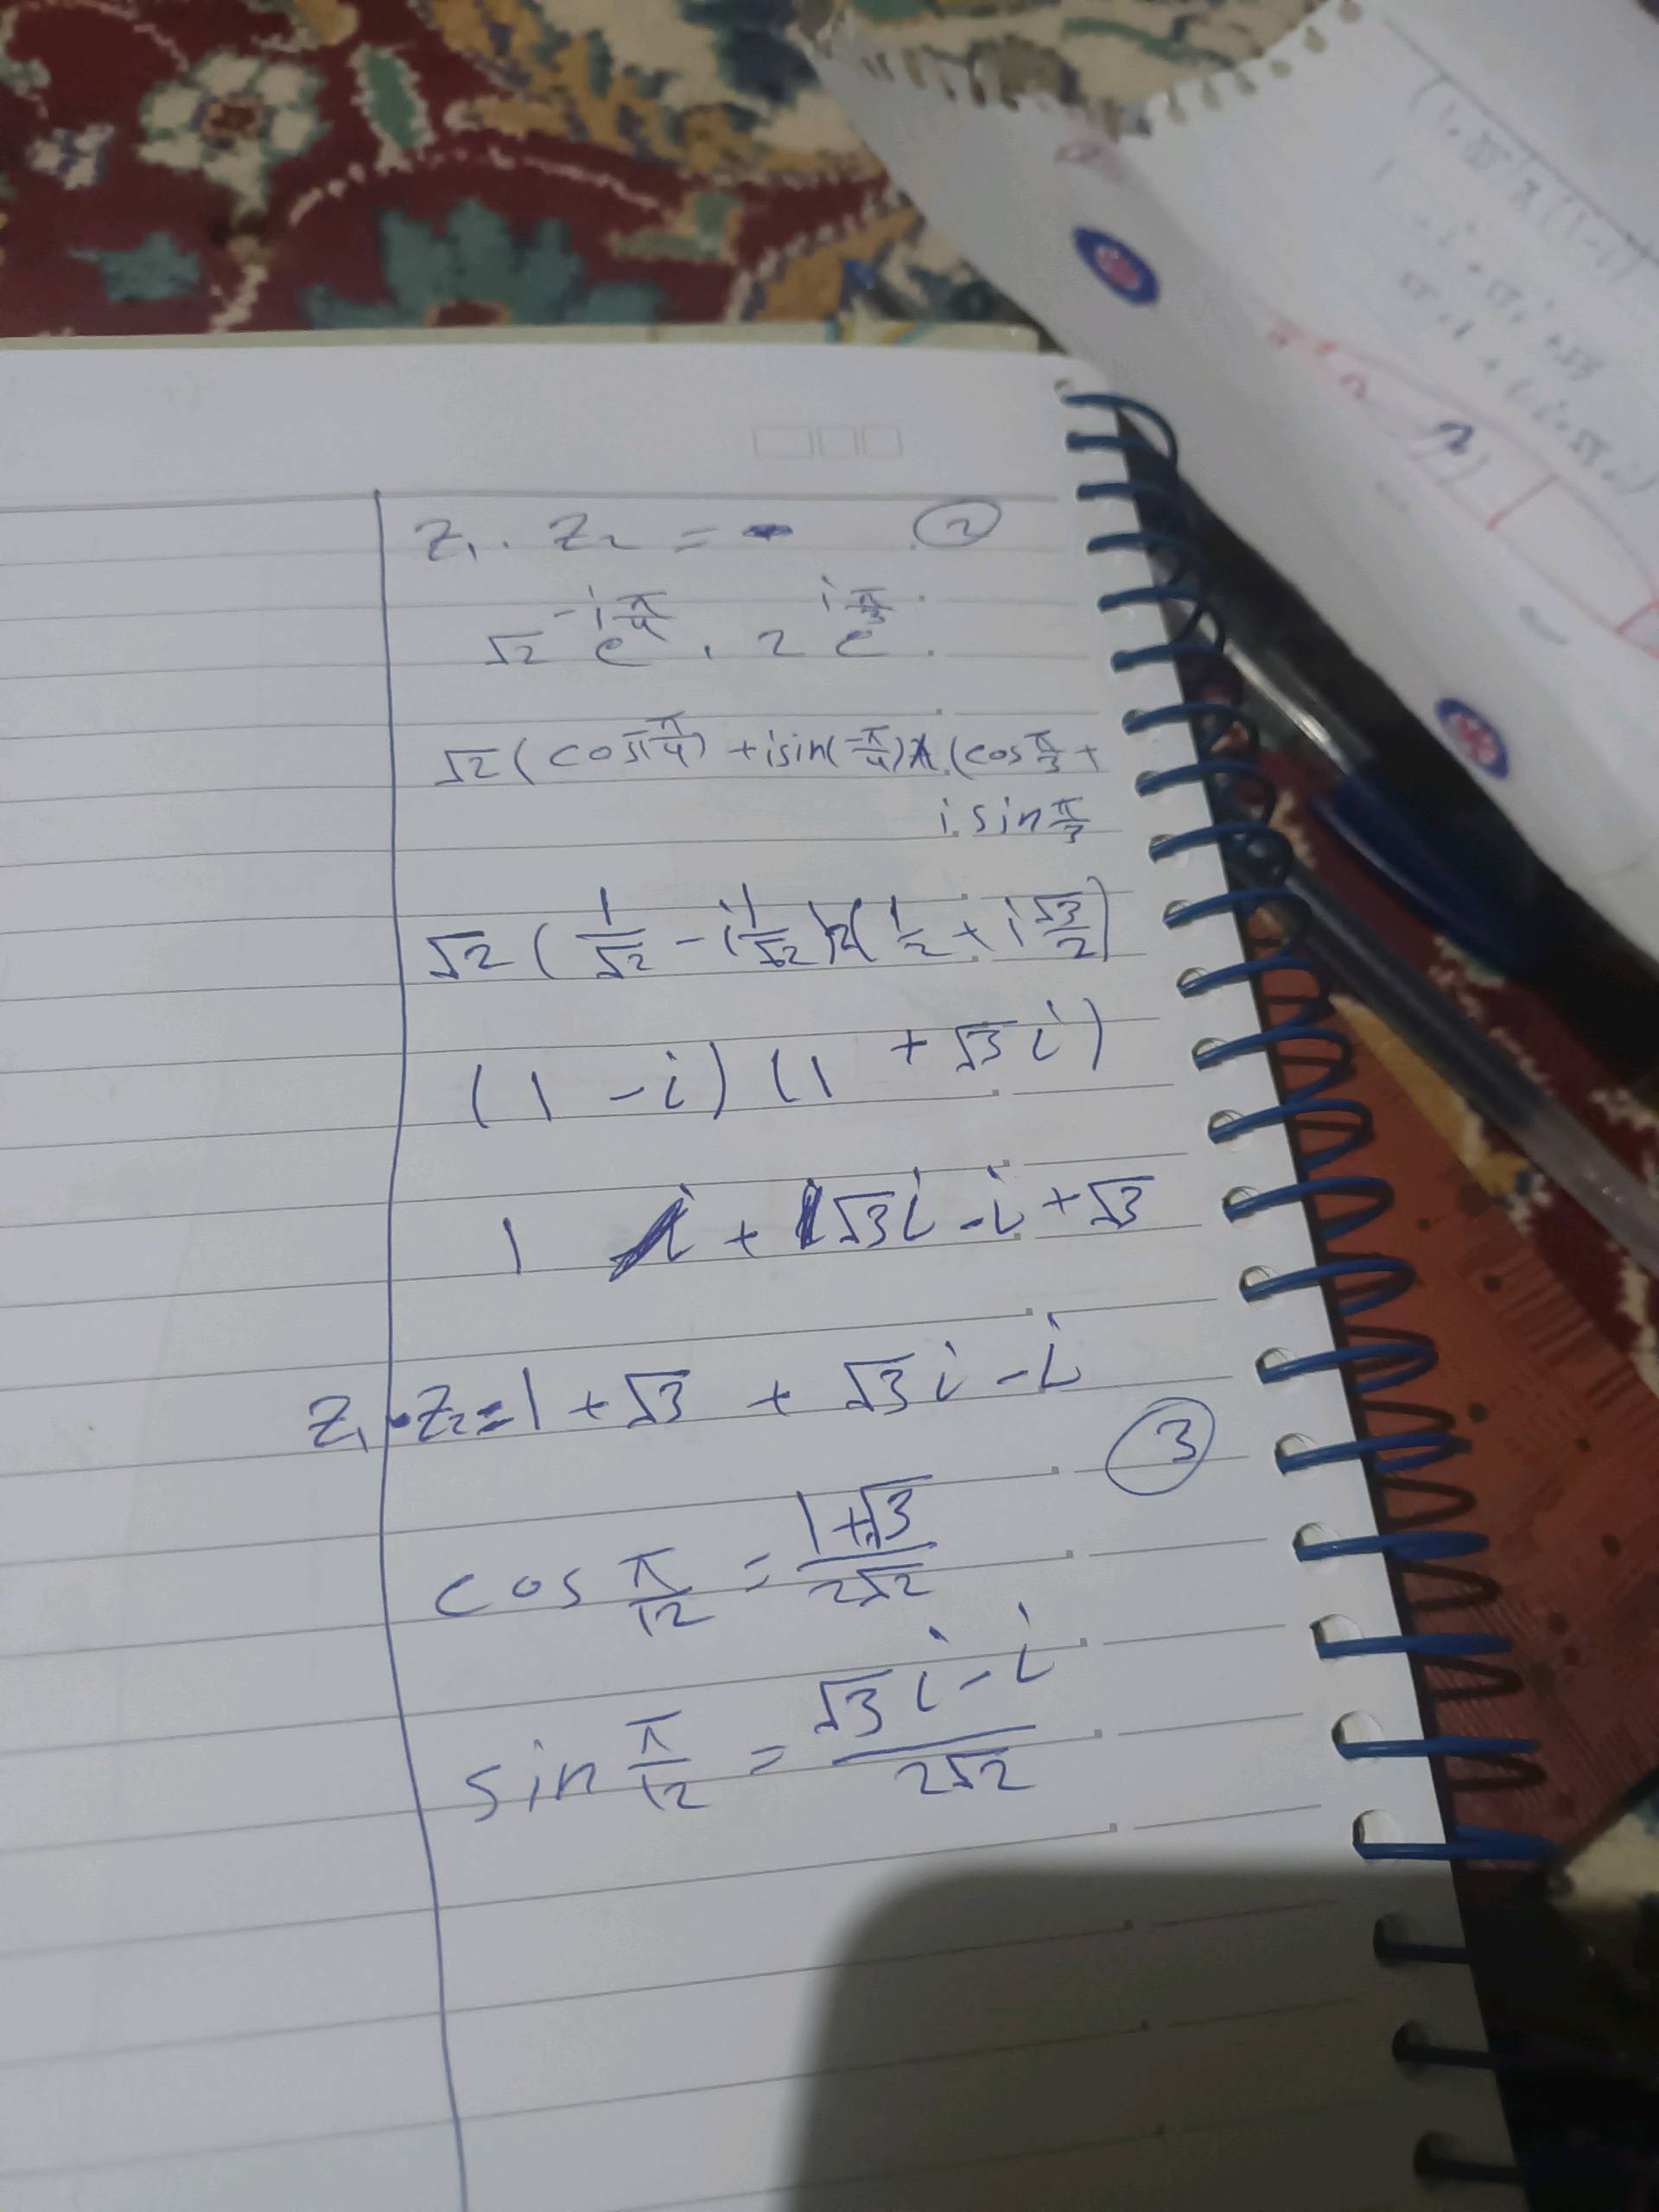 z₁ . z₂ = ②
√2 e^(-iπ/4) . 2 e^(iπ/3)
√2 ( cos π/4) + i sin(-π/4) . (cos π/3 +
i sin π/3
√2 ( 1/√2 - i 1/√2 ) 2( 1/2 + i √3/2 )
( 1 - i ) ( 1 + √3 i )
1 + √3 i - i + √3
z₁ . z₂ = 1 + √3 + √3 i - i
③
cos π/12 = (1+√3)/(2√2)
sin π/12 = (√3 i - i)/(2√2)